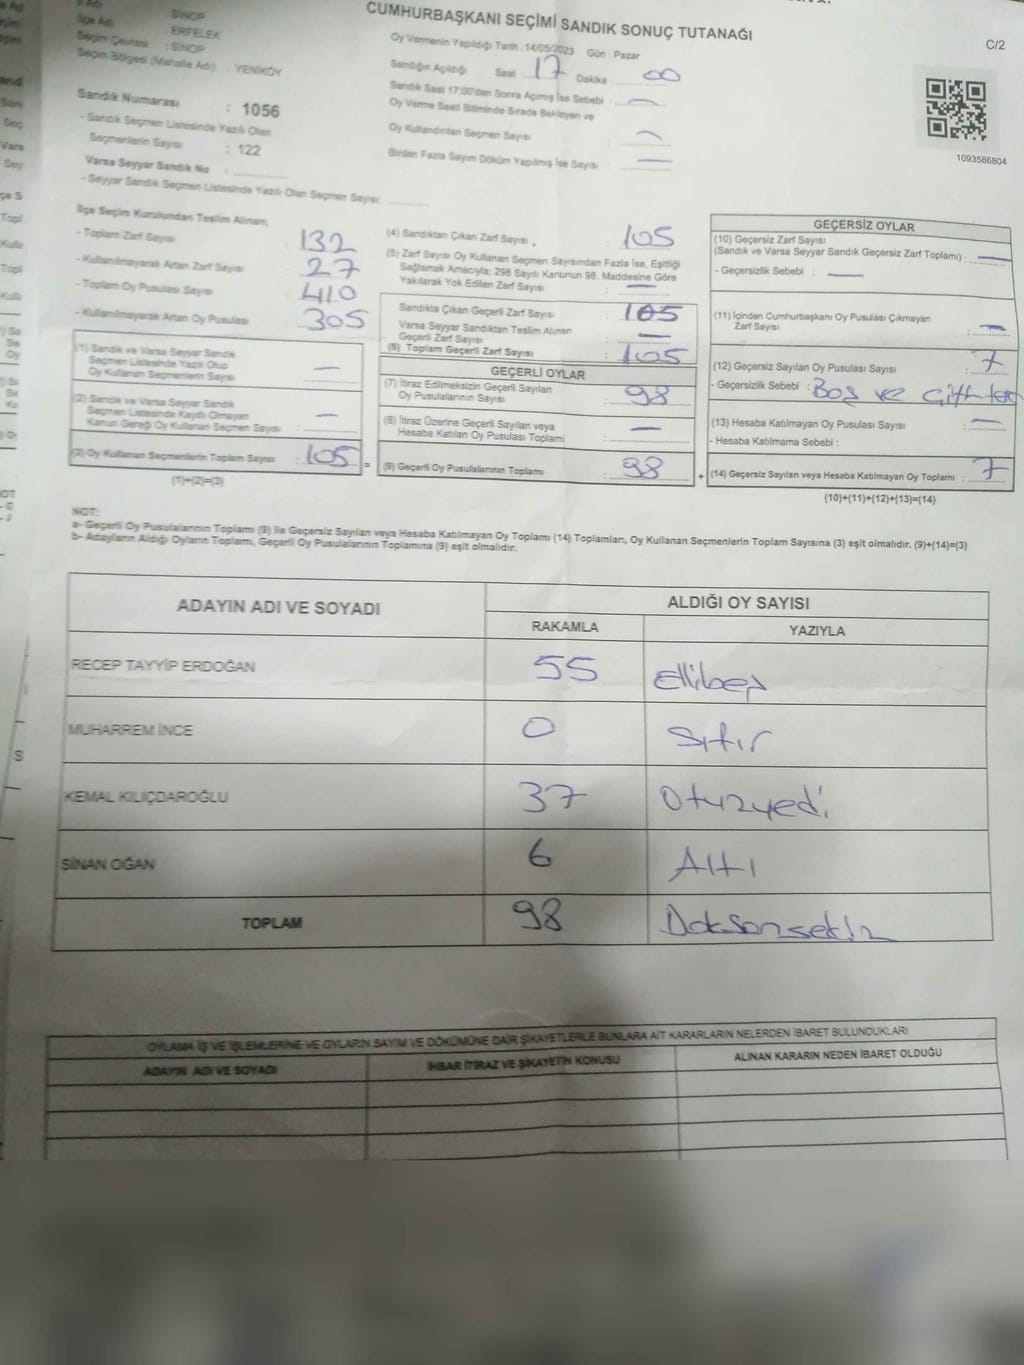 CUMHURBAŞKANI SEÇİMİ SANDIK SONUÇ TUTANAĞI
C/2
İlçe Adı : SİNOP
ERFELEK
Seçim Çevresi : SİNOP
Seçim Bölgesi (Mahalle Adı) : YENİKÖY
Sandık Numarası : 1056
- Sandık Seçmen Listesinde Yazılı Olan
Seçmenlerin Sayısı : 122
Varsa Seyyar Sandık No :
- Seyyar Sandık Seçmen Listesinde Yazılı Olan Seçmen Sayısı:
Oy Vermenin Yapıldığı Tarih : 14/05/2023 Gün : Pazar
Sandığın Açıldığı Saat : 17 Dakika : 00
Sandık Saat 17:00'den Sonra Açımış İse Sebebi : —
Oy Verme Saati Bitiminde Sırada Bekleyen ve
Oy Kullandırılan Seçmen Sayısı : —
Birden Fazla Sayım Döküm Yapılmış İse Sayısı : —
1093586804
İlçe Seçim Kurulundan Teslim Alınan;
- Toplam Zarf Sayısı : 132
- Kullanılmayarak Artan Zarf Sayısı : 27
- Toplam Oy Pusulası Sayısı : 410
- Kullanılmayarak Artan Oy Pusulası : 305
(1) Sandık ve Varsa Seyyar Sandık
Seçmen Listesinde Yazılı Olup
Oy Kullanan Seçmenlerin Sayısı : —
(2) Sandık ve Varsa Seyyar Sandık
Seçmen Listesinde Kayıtlı Olmayan
Kanun Gereği Oy Kullanan Seçmen Sayısı : —
(3) Oy Kullanan Seçmenlerin Toplam Sayısı : 105 =
(1)+(2)=(3)
(4) Sandıktan Çıkan Zarf Sayısı : 105
(5) Zarf Sayısı Oy Kullanan Seçmen Sayısından Fazla İse, Eşitliği
Sağlamak Amacıyla; 298 Sayılı Kanunun 98. Maddesine Göre
Yakılarak Yok Edilen Zarf Sayısı : —
Sandıkta Çıkan Geçerli Zarf Sayısı : 105
Varsa Seyyar Sandıktan Teslim Alınan
Geçerli Zarf Sayısı : —
(6) Toplam Geçerli Zarf Sayısı : 105
GEÇERLİ OYLAR
(7) İtiraz Edilmeksizin Geçerli Sayılan
Oy Pusulalarının Sayısı : 98
(8) İtiraz Üzerine Geçerli Sayılan veya
Hesaba Katılan Oy Pusulası Toplamı : —
(9) Geçerli Oy Pusulalarının Toplamı : 98 +
GEÇERSİZ OYLAR
(10) Geçersiz Zarf Sayısı
(Sandık ve Varsa Seyyar Sandık Geçersiz Zarf Toplamı) : —
- Geçersizlik Sebebi : —
(11) İçinden Cumhurbaşkanı Oy Pusulası Çıkmayan
Zarf Sayısı : —
(12) Geçersiz Sayılan Oy Pusulası Sayısı : 7
- Geçersizlik Sebebi : Boş ve
(13) Hesaba Katılmayan Oy Pusulası Sayısı : —
- Hesaba Katılmama Sebebi :
(14) Geçersiz Sayılan veya Hesaba Katılmayan Oy Toplamı : 7
(10)+(11)+(12)+(13)=(14)
NOT:
a- Geçerli Oy Pusulalarının Toplamı (9) ile Geçersiz Sayılan veya Hesaba Katılmayan Oy Toplamı (14) Toplamları, Oy Kullanan Seçmenlerin Toplam Sayısına (3) eşit olmalıdır. (9)+(14)=(3)
b- Adayların Aldığı Oyların Toplamı, Geçerli Oy Pusulalarının Toplamına (9) eşit olmalıdır.
ADAYIN ADI VE SOYADI ALDIĞI OY SAYISI
RAKAMLA YAZIYLA
RECEP TAYYİP ERDOĞAN 55 Ellibeş
MUHARREM İNCE 0 Sıfır
KEMAL KILIÇDAROĞLU 37 Otuzyedi
SİNAN OĞAN 6 Altı
TOPLAM 98 Doksansekiz
OYLAMA İŞ VE İŞLEMLERİNE VE OYLARIN SAYIM VE DÖKÜMÜNE DAİR ŞİKAYETLERLE BUNLARA AİT KARARLARIN NELERDEN İBARET BULUNDUKLARI
ADAYIN ADI VE SOYADI İHBAR İTİRAZ VE ŞİKAYETİN KONUSU ALINAN KARARIN NEDEN İBARET OLDUĞU